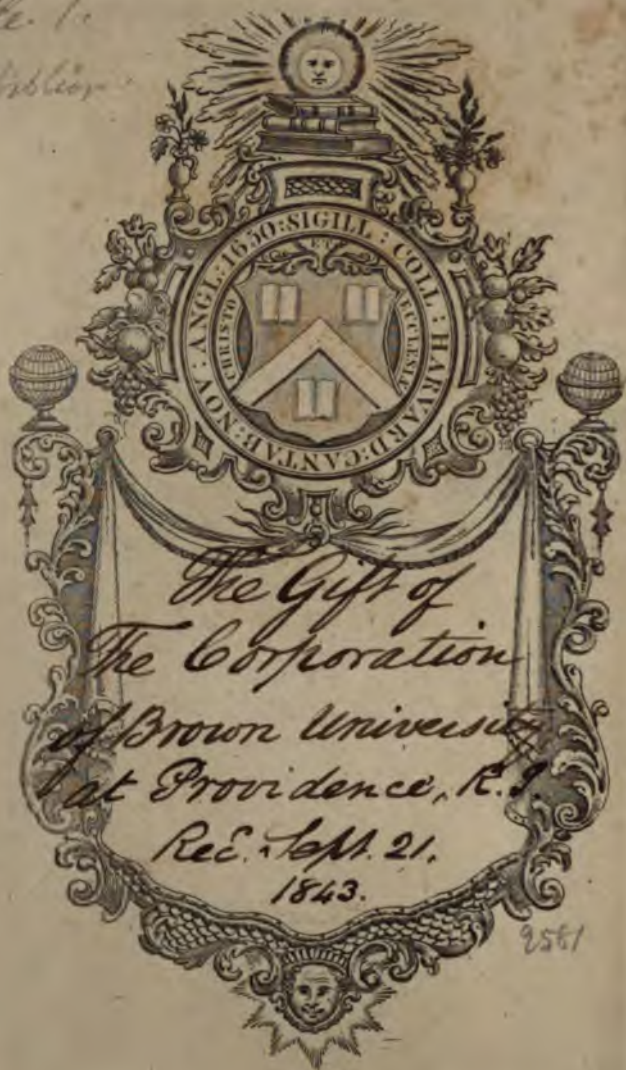 SIGILL : COLL : HARVARD : CANTAB : NOV : ANGL : 1650 :
CHRISTO ET ECCLESIÆ
The Gift of
The Corporation
of Brown University
at Providence, R. I.
Rec. Sept. 21.
1843.